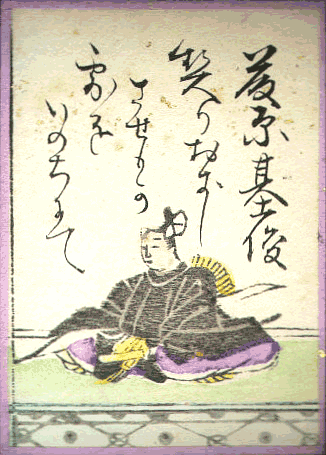 藤原基俊
契りおきし
させもが
露を
いのちにて